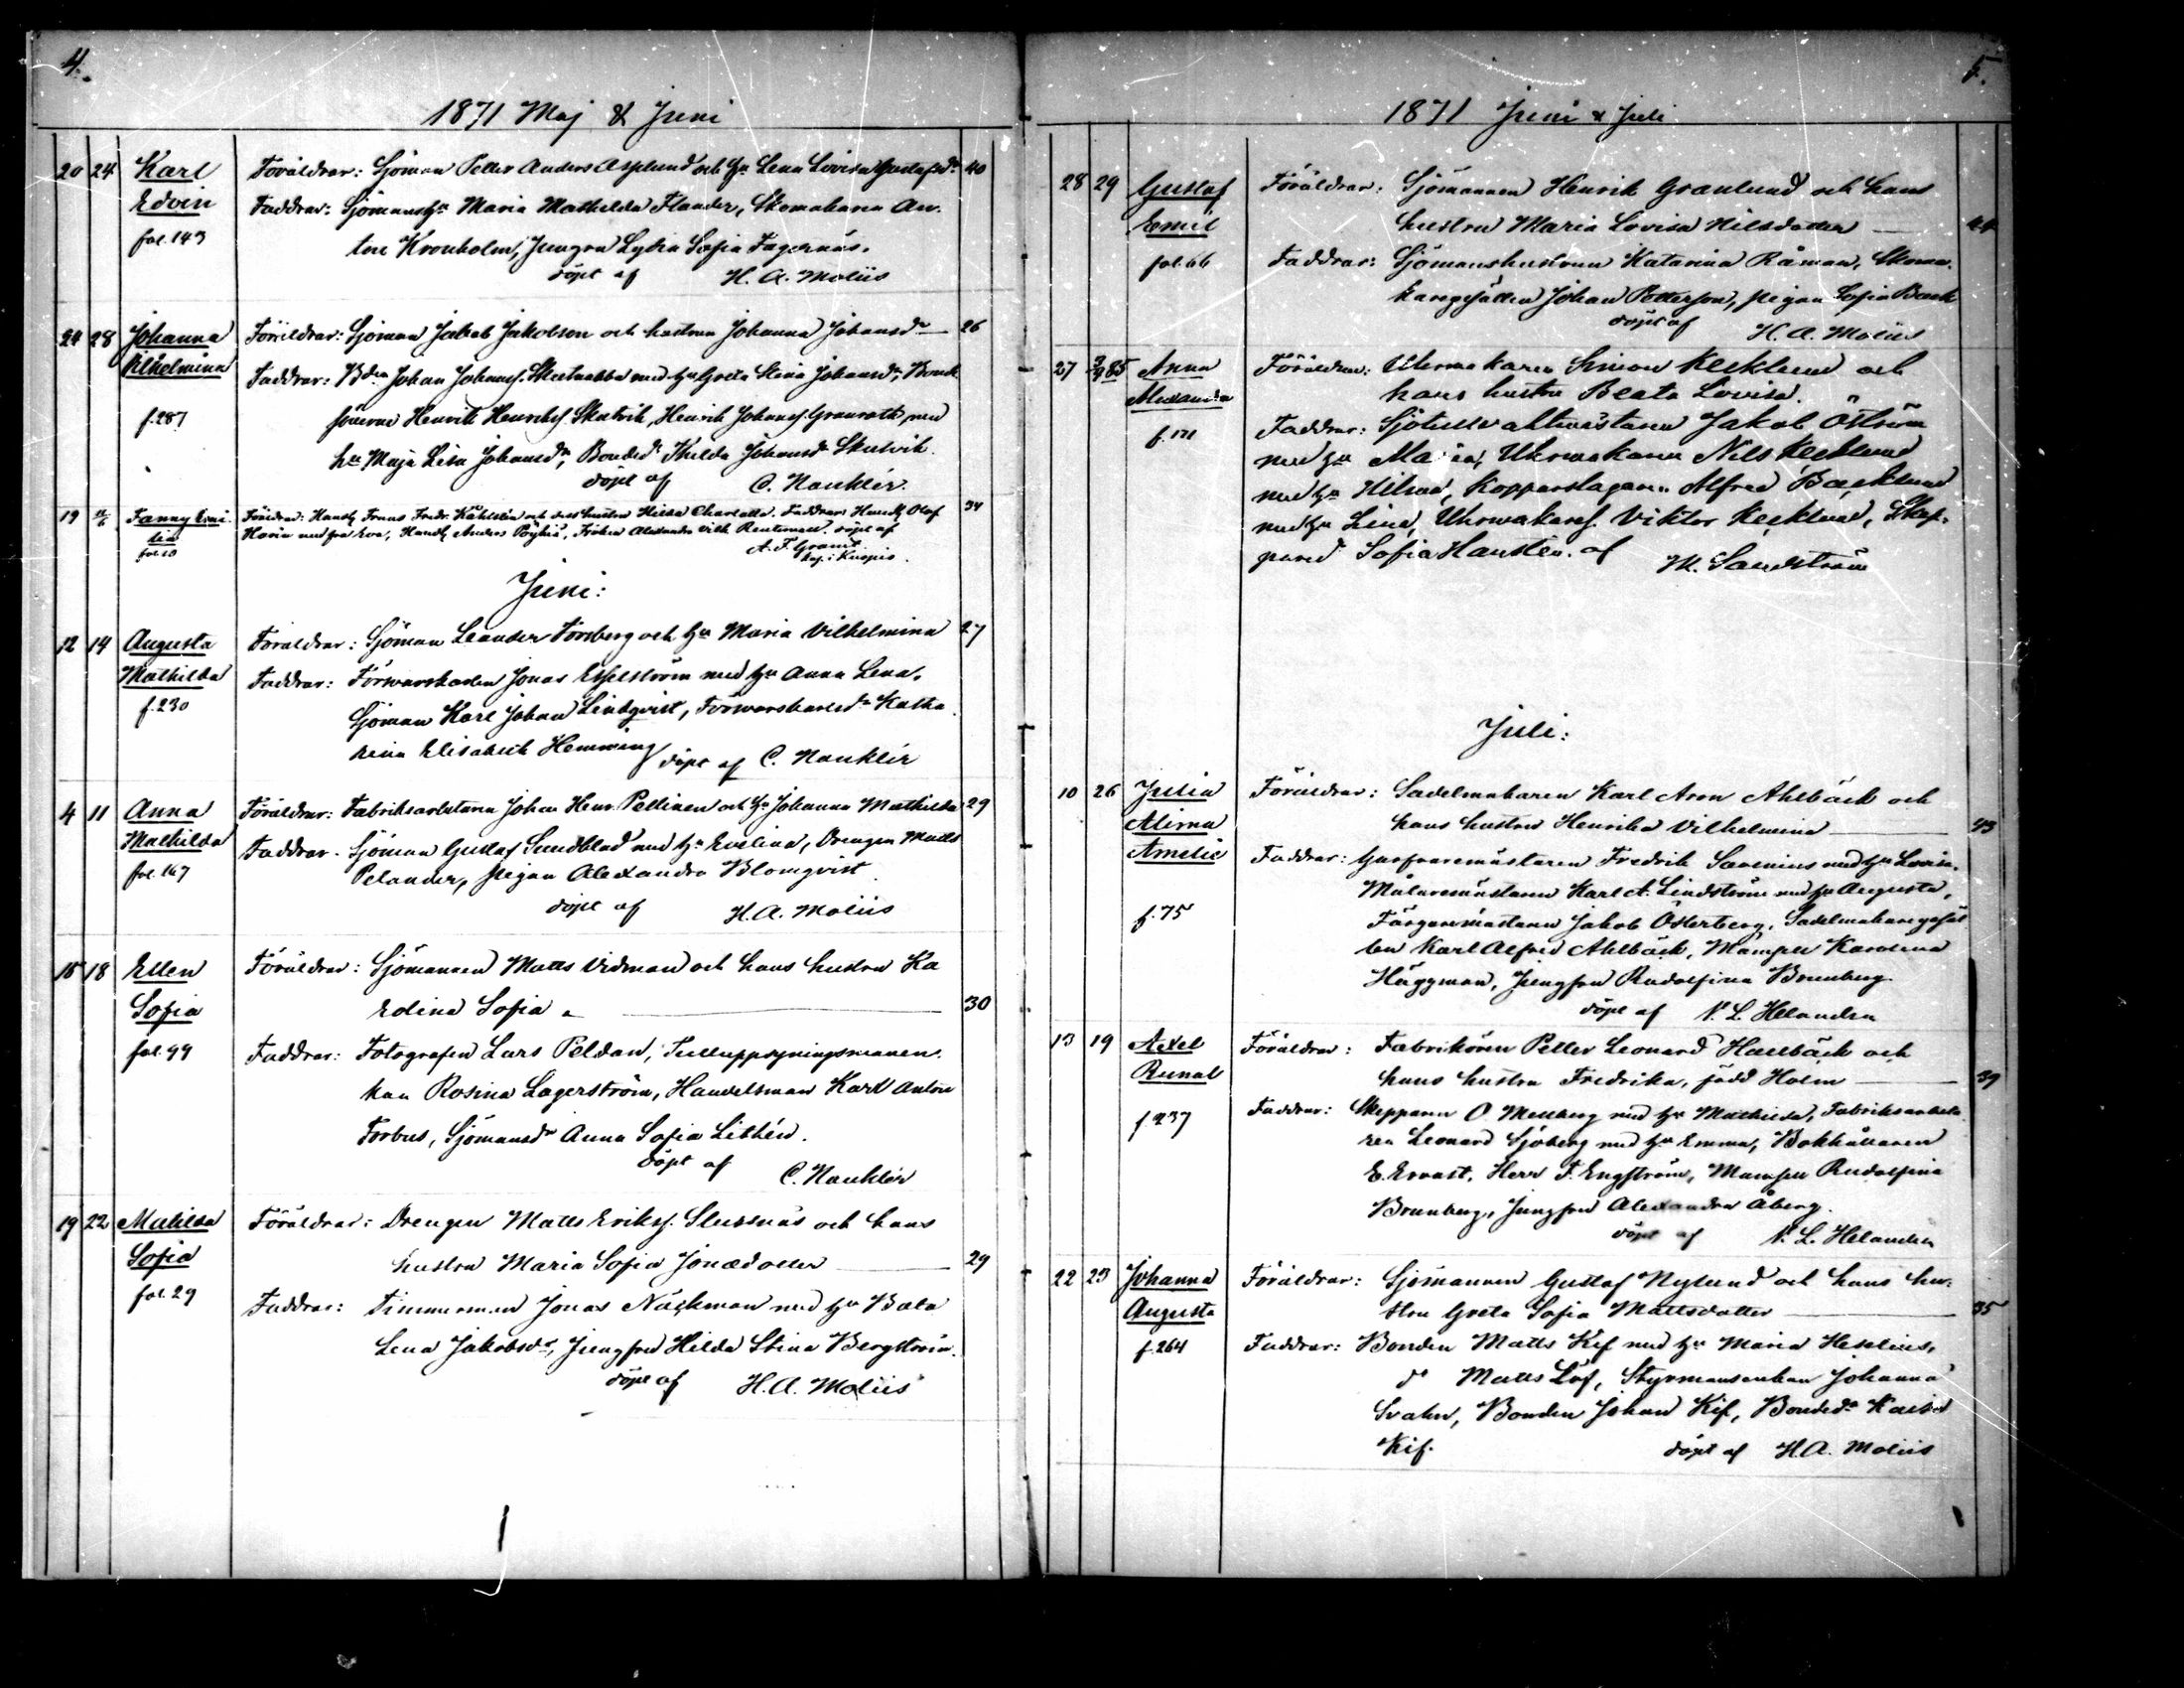 4.
1871 Maj & Juni
20 24 Karl Föräldrar: Sjöman Petter Anders Asplund och hu Lena Lovisa Gustafsdr 40
Edvin Faddrar: Sjömanshu Maria Mathilda Flander, Skomakaren An-
fol. 143 ton Kronholm, Jungfru Lydia Sofia Fagernäs.
döpt af H. A. Moliis
24 28 Johanna Föräldrar: Sjöman Jakob Jakobson och hustrun Johanna Johansdr 26
Vilhelmina Faddrar: Bdn Johan Johanss. Skutnabba med hu Greta Stina Johansdr, Bonde
f. 287 sönerne Henrik Henrikss. Skutvik, Henrik Johanss. Granrott, med
hu Maja Lisa Johansdr, Bondedr Hulda Johansdr Skutvik.
döpt af C. Nauklér
19 Fanny Föräldrar: Handl. Frans Fredr. och dess hustru Hilda Charlotta. Faddrar: Handl. Olof 34
fol. 10 med fru Eva, Handl. Anders Pöyhiä, Fröken Alexandra Vilh. döpt af
A. F. Granit
Kap. i Kuopio.
Juni:
12 14 Augusta Föräldrar: Sjöman Leander Forsberg och hu Maria Vilhelmina 27
Mathilda Faddrar: Förswarskarlen Jonas Esselström med hu Anna Lena,
f. 230 Sjöman Karl Johan Lindqvist, Förswarskarlsdr Katha-
rina Elisabeth Hemming döpt af C. Nauklér
4 11 Anna Föräldrar: Fabriksarbetaren Johan Henr. Pellinen och hu Johanna Mathilda 29
Mathilda Faddrar. Sjöman Gustaf Sundblad med hu Evelina, Drengen Matts
fol. 167 Pelander, pigan Alexandra Blomqvist
döpt af H. A. Moliis
15 18 Ellen Föräldrar: Sjömannen Matts Vidman och hans hustru Ka
Sofia Edina Sofia 30
fol. 99 Faddrar: Fotografen Lars Peldan, Tulluppsyningsmannen-
kan Rosina Lagerström, Handelsman Karl Anton
Forbus, Sjömansdr Anna Sofia Lithén.
döpt af C. Nauklér
19 22 Matilda Föräldrar: Drengen Matts Erikss. Slussnäs och hans
Sofia hustru Maria Sofia Jonædotter 29
fol. 29 Faddrar: Timmerman Jonas Näckman med hu Bata
Lena Jakobsdr, Jungfru Hilda Stina Bergström.
döpt af H. A. Moliis
5.
1871 Juni & Juli
28 29 Gustaf Föräldrar: Sjömannen Henrik Granlund och hans
Emil hustru Maria Lovisa Nilsdotter 44
fol. 66 Faddrar: Sjömanshustrun Katarina Råman, Skoma-
karegesällen Johan Petterson, pigan Sofia Back
döpt af H. A. Moliis
27 Anna Föräldrar: Uhrmakaren Simon Kecklund och
Alexandra hans hustru Beata Lovisa.
Faddrar: Sjötullvaktmästaren Jakob Öström
med hu Maria, Uhrmakaren Nils Kecklund
med hu Hilma, Kopparslagaren Alfred Bäcklund
med hu Lina, Uhrmakares. Viktor Kecklund, Skep-
pared. Sofia Hansten. af M. Sandström
Juli:
10 26 Julia Föräldrar: Sadelmakaren Karl Aron Ahlbäck och
Alima hans hustru Henrika Vilhelmina 43
Amelie Faddrar: Garfvaremästaren Fredrik Savenius med hu Lovisa,
Målaremästaren Karl A. Lindström med hu Augusta,
f. 75 Färgaremästaren Jakob Österberg, Sadelmakaregesäl
len Karl Alfred Ahlbäck, Mamsell Karolina
Häggman, Jungfru Rudolfina Brunberg.
döpt af N. L. Helander
13 19 Axel Föräldrar: Fabrikören Petter Leonard Hallbäck och
Runal hans hustru Fredrika, född Holm 39
f 237 Faddrar: Skepparen O Mellberg med hu Mathilda, Fabriksarbeta
ren Leonard Sjöberg med hu Emma, Bokhållaren
E. Ervast, Herr F. Engström, Mamsell Rudolfina
Brunberg, Jungfru Alexandra Åberg.
döpt af N. L. Helander
22 23 Johanna Föräldrar: Sjömannen Gustaf Nylund och hans hu-
Augusta stru Greta Sofia Mattsdotter 35
f. 264 Faddrar: Bonden Matts Kif med hu Maria Heselius,
do Matts Löf, Styrmansenkan Johanna
Svahn, Bonden Johan Kif, Bondedr Kaisa
Kif. döpt af H. A. Moliis